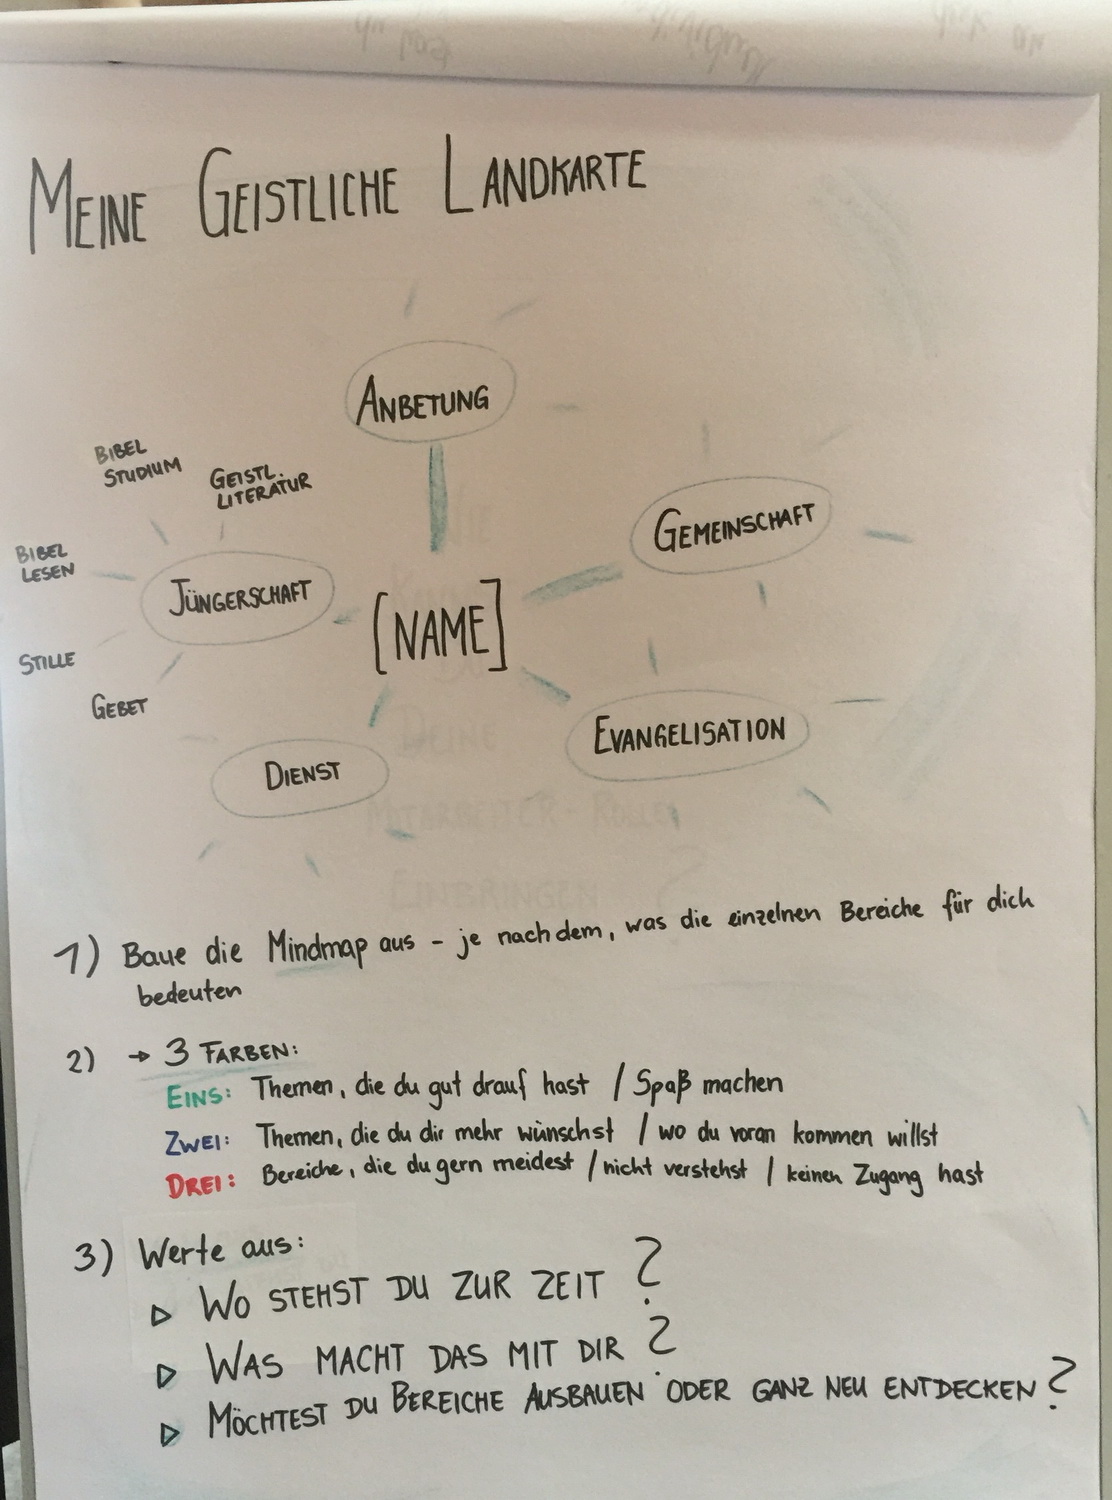 MEINE GEISTLICHE LANDKARTE
ANBETUNG
BIBEL
STUDIUM
GEISTL.
LITERATUR
GEMEINSCHAFT
BIBEL
LESEN
JÜNGERSCHAFT
[NAME]
STILLE
GEBET
EVANGELISATION
DIENST
DEINE
MITARBEITER-ROLLE
EINBRINGEN ?
1) Baue die Mindmap aus - je nachdem, was die einzelnen Bereiche für dich
bedeuten
2) → 3 FARBEN:
EINS: Themen, die du gut drauf hast / Spaß machen
ZWEI: Themen, die du dir mehr wünschst / wo du voran kommen willst
DREI: Bereiche, die du gern meidest / nicht verstehst / keinen Zugang hast
3) Werte aus:
▷ WO STEHST DU ZUR ZEIT ?
▷ WAS MACHT DAS MIT DIR ?
▷ MÖCHTEST DU BEREICHE AUSBAUEN ODER GANZ NEU ENTDECKEN ?